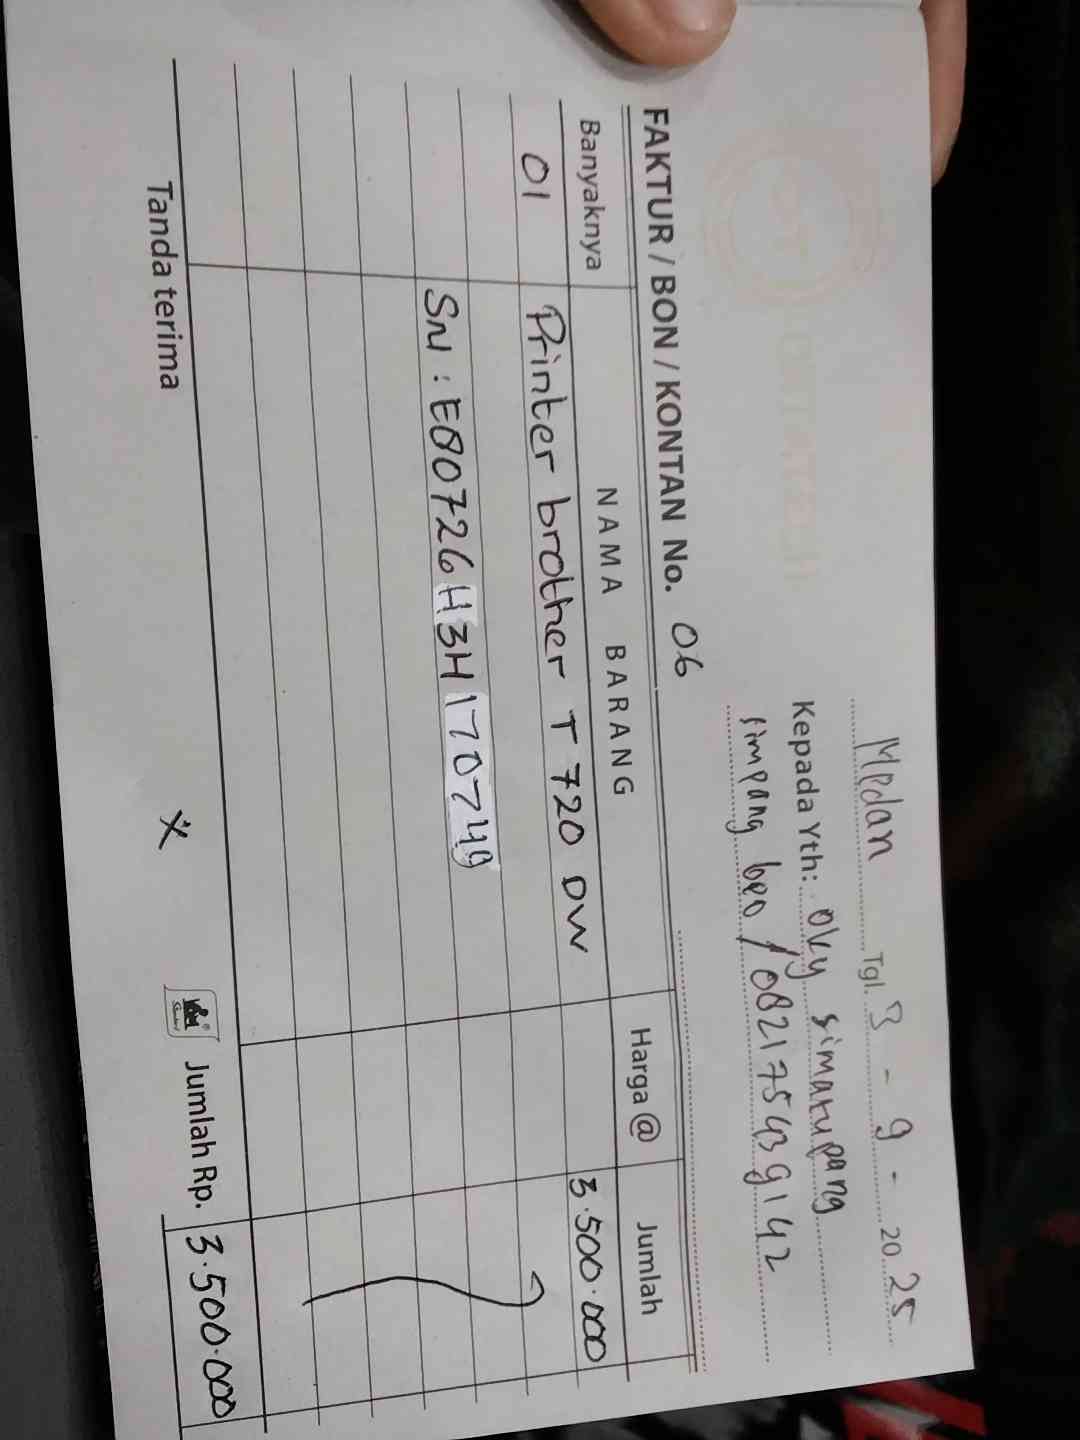 Medan Tgl. 3 - 9 - 2025
Kepada Yth: Oky Simatupang
Simpang beo / 082175439142
FAKTUR / BON / KONTAN No. 06
Banyaknya NAMA BARANG Harga @ Jumlah
01 Printer brother T 720 DW 3.500.000
SN : E80726H3H170749
Tanda terima Jumlah Rp. 3.500.000